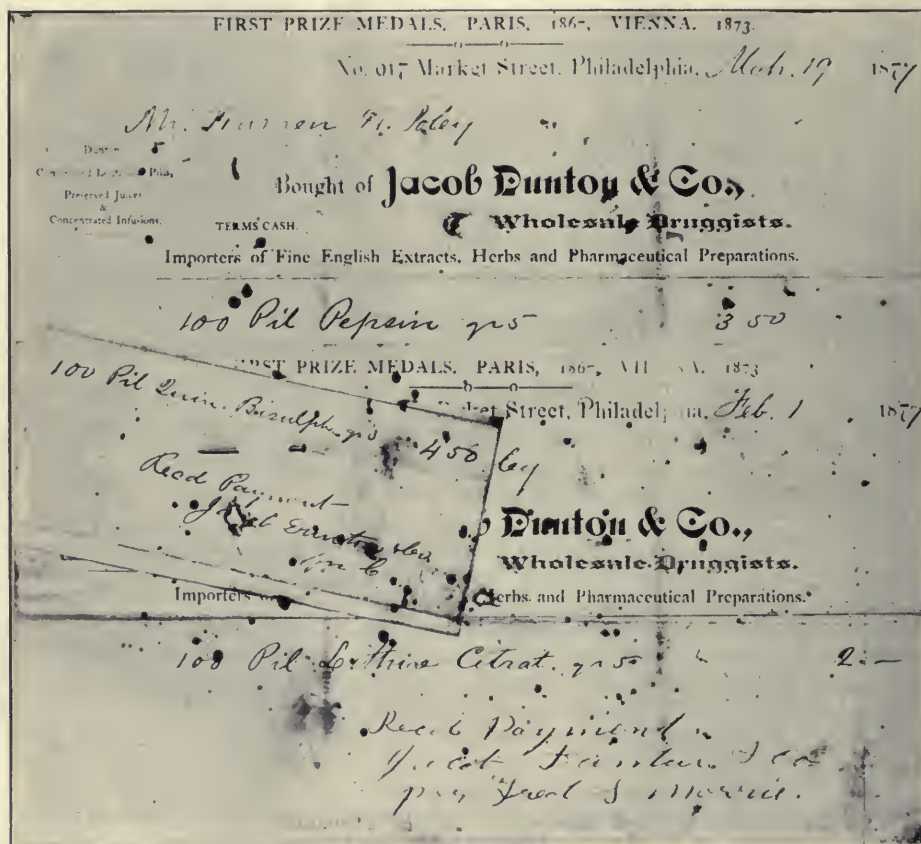 FIRST PRIZE MEDALS, PARIS, 1867, VIENNA, 1873.
No. 917 Market Street, Philadelphia, Mch. 19 1877
Mr. Warren H. Poley
Preserved Juices
&
Concentrated Infusions.
TERMS CASH.
Bought of Jacob Dunton & Co.,
Wholesale Druggists.
Importers of Fine English Extracts, Herbs and Pharmaceutical Preparations.
100 Pil Pepsin grs 3 50
FIRST PRIZE MEDALS, PARIS, 1867, 1873
Market Street, Philadelphia, Feb. 1 1877
100 Pil Quin. Bisulph. 4 50
ley
Recd Payment
Jacob Dunton & Co
Dunton & Co.,
Wholesale Druggists.
Importers Herbs and Pharmaceutical Preparations.
100 Pil Lithiae Citrat. gr 5 " 2 —
Recd Payment
Jacob Dunton & Co
per Fred S Morris.